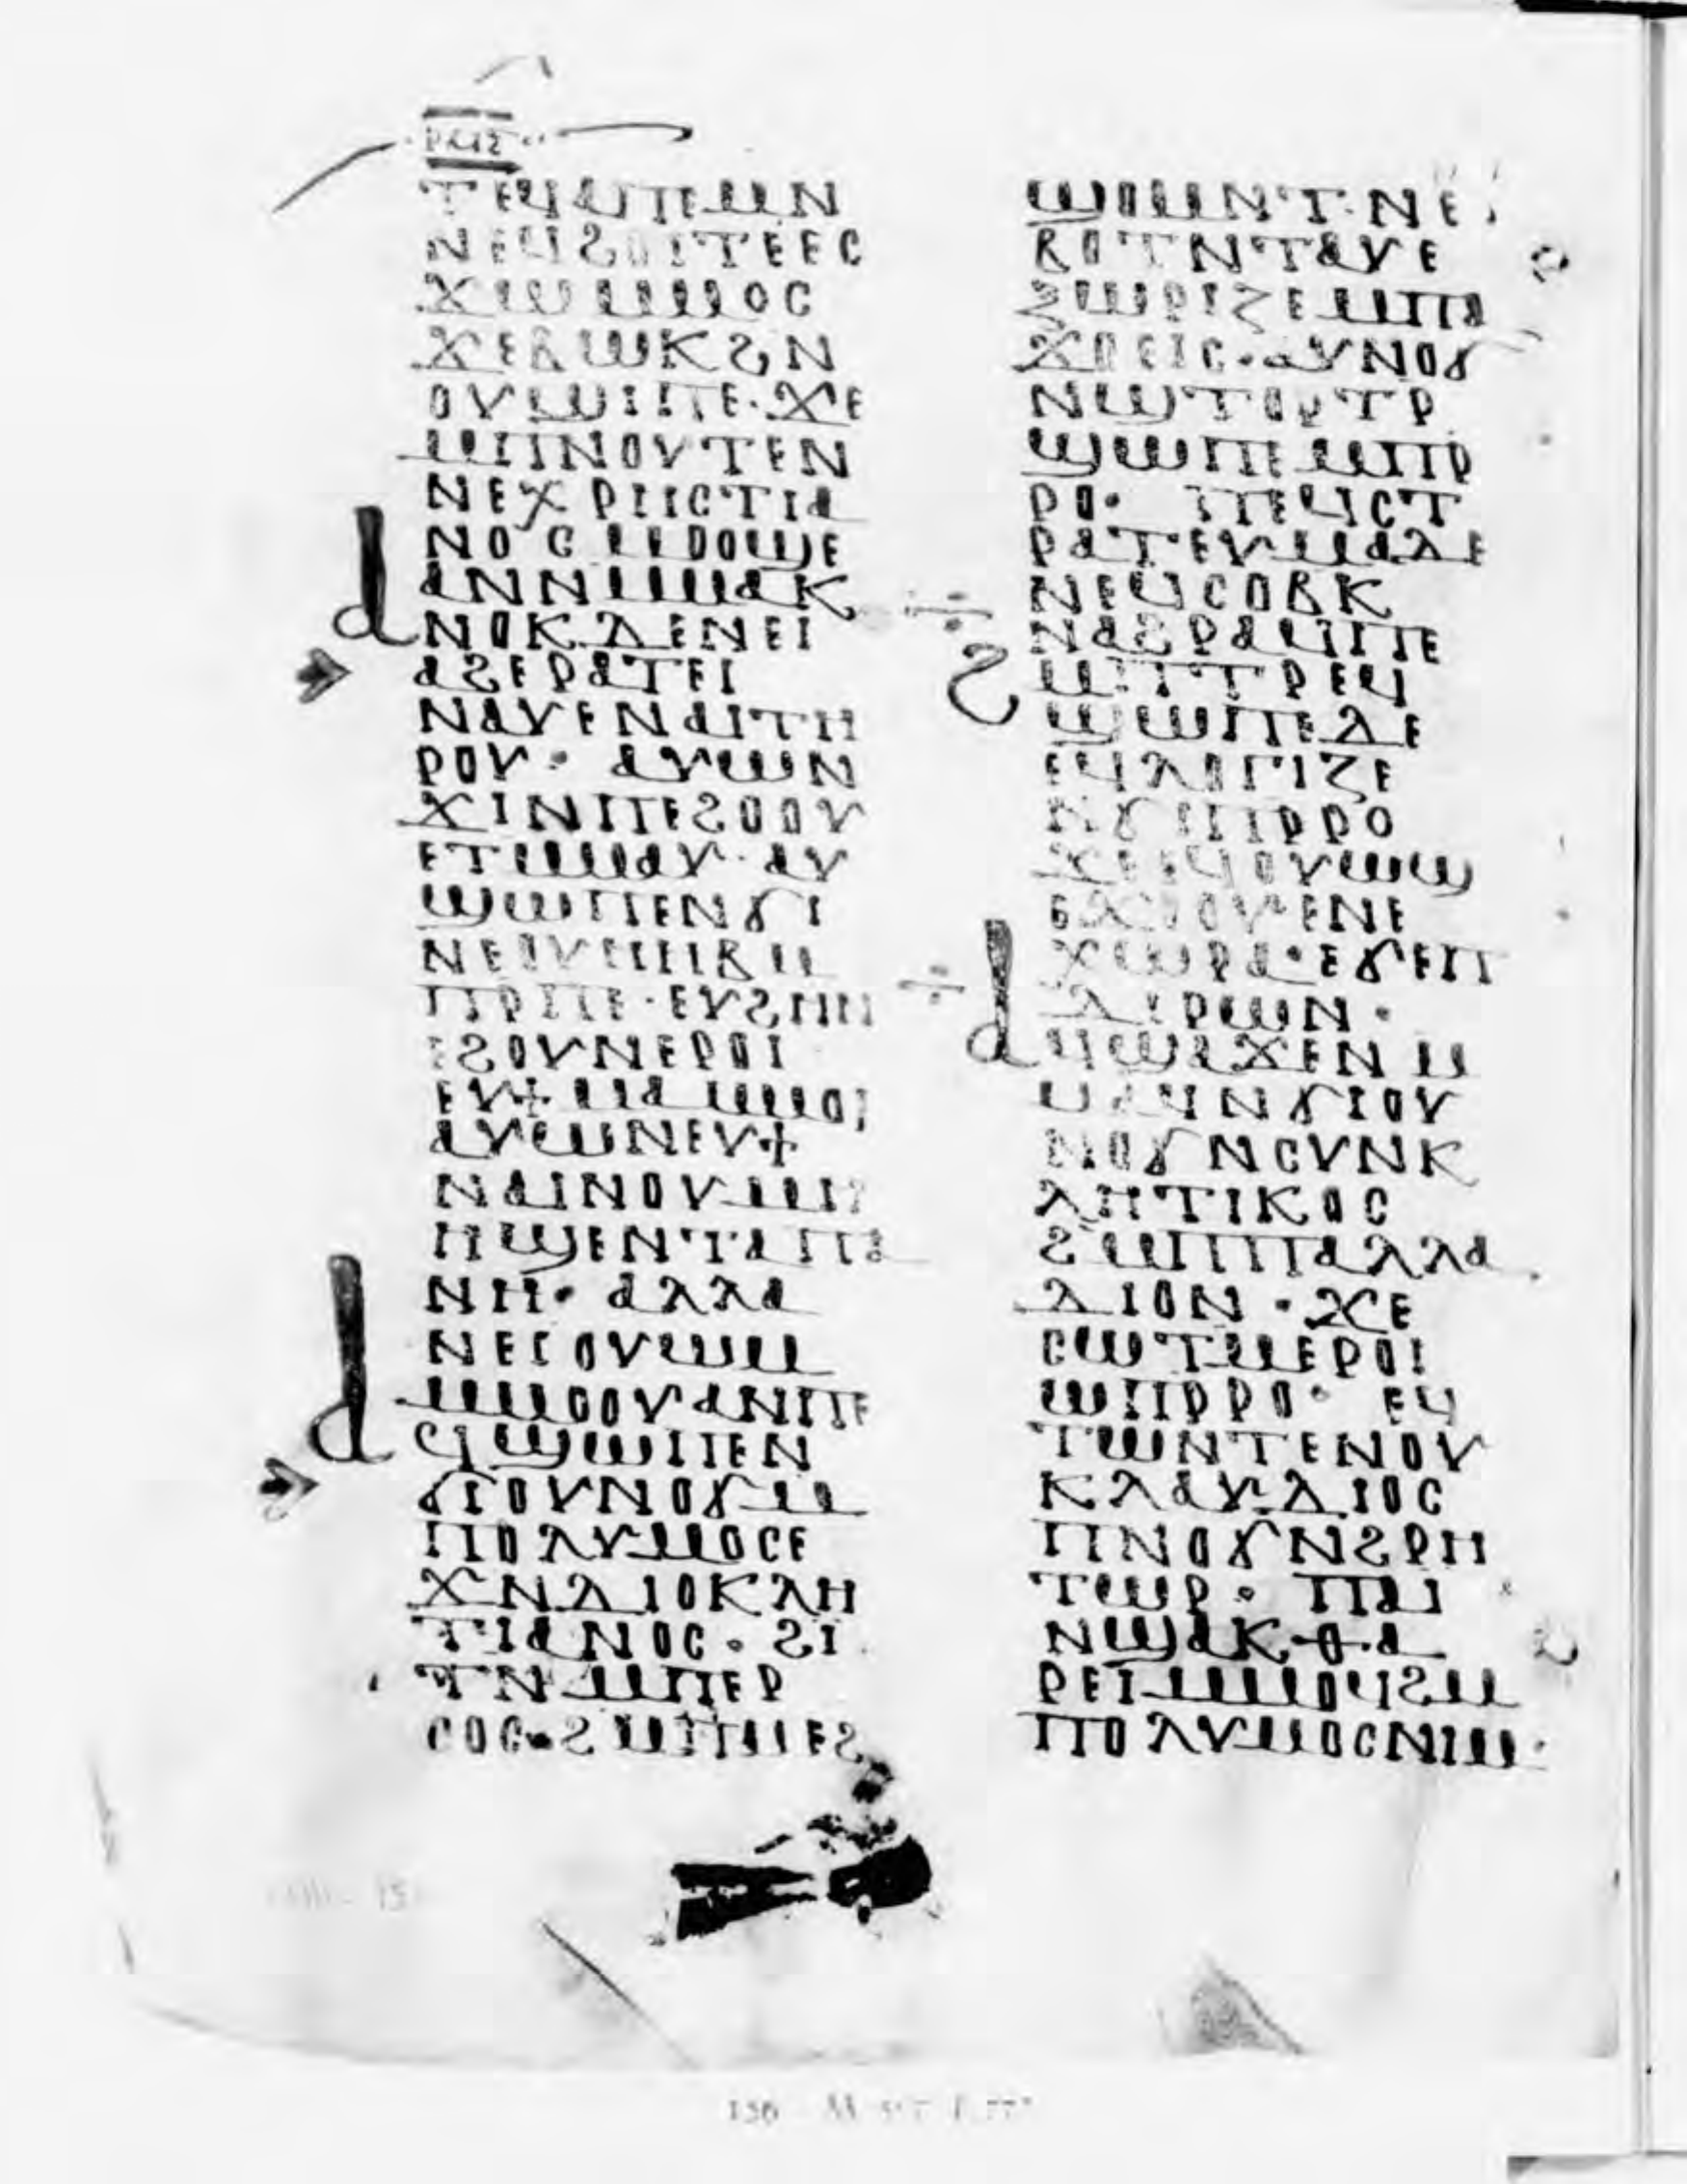 ⲧⲉϥⲁⲡⲉⲙⲛ
ⲛⲉϥϩⲟⲓⲧⲉⲉⲥ
ϫⲱⲙⲙⲟⲥ
ϫⲉⲃⲱⲕϩⲛ
ⲟⲩϣⲓⲡⲉ·ϫⲉ
ⲙⲡⲛⲟⲩⲧⲉⲛ
ⲛⲉⲭⲣⲏⲥⲧⲓⲁ
ⲛⲟⲥⲙⲟⲟϣⲉ
ⲁⲛⲛⲙⲙⲁⲕ
ⲁⲛⲟⲕⲇⲉⲛⲉⲓ
ⲁϩⲉⲣⲁⲧⲉⲓ
ⲛⲁⲩⲉⲛⲁⲓⲧⲏ
ⲣⲟⲩ· ⲁⲩⲱⲛ
ϫⲓⲛⲡⲉϩⲟⲟⲩ
ⲉⲧⲙⲙⲁⲩ·ⲁⲩ
ϣⲱⲡⲉⲛϭⲓ
ⲛⲉⲓⲩⲙⲏⲃⲙ
ⲡⲣⲡⲉ·ⲉⲩϩⲏⲛ
ⲉϩⲟⲩⲛⲉⲣⲟⲓ
ⲉⲩϯⲙⲁⲙⲙⲟⲓ
ⲁⲩⲱⲛⲉⲩϯ
ⲛⲁⲓⲛⲟⲩⲙⲏ
ⲏϣⲉⲛⲧⲁⲡⲁ
ⲛⲏ· ⲁⲗⲗⲁ
ⲛⲉⲓⲟⲩⲱⲙ
ⲙⲙⲟⲟⲩⲁⲛⲡⲉ
ⲁⲥϣⲱⲡⲉⲛ
ϭⲓⲟⲩⲛⲟϭⲙ
ⲡⲟⲗⲩⲙⲟⲥⲉ
ϫⲛⲇⲓⲟⲕⲗⲏ
ⲧⲓⲁⲛⲟⲥ·ϩⲓ
ⲧⲛⲙⲡⲉⲣ
ⲥⲟⲥ·ϩⲙⲡⲙⲉϩ
ϣⲟⲙⲛⲧ·ⲛⲉ
ⲃⲟⲧⲛⲧⲁⲩⲉ
ϩⲱⲣⲓⲍⲉⲙⲡⲁ
ϫⲟⲉⲓⲥ·ⲁⲩⲛⲟϭ
ⲛϣⲧⲟⲣⲧⲣ
ϣⲱⲡⲉⲙⲡⲣ
ⲣⲟ· ⲡⲉϥⲥⲧ
ⲣⲁⲧⲉⲩⲙⲁⲇⲉ
ⲛⲉϥⲥⲟⲃⲕ
ⲛⲁϩⲣⲁϥⲡⲉ
ϩⲙⲡⲧⲣⲉϥ
ϣⲱⲡⲉⲇⲉ
ⲉϥⲗⲟⲅⲓⲍⲉ
ⲛϭⲓⲡⲣⲣⲟ
ϫⲉⲉϥⲟⲩⲱϣ
ⲉϫⲟⲟⲩⲉⲛⲉ
ⲭⲱⲣⲁ·ⲉϭⲉⲡ
ⲗⲓⲣⲱⲛ·
ⲁϥϣⲁϫⲉⲛⲙ
ⲙⲁϥⲛϭⲓⲟⲩ
ⲛⲟϭⲛⲥⲩⲛⲕ
ⲗⲏⲧⲓⲕⲟⲥ
ϩⲙⲡⲡⲁⲗⲗⲁ
ⲇⲓⲟⲛ·ϫⲉ
ⲥⲱⲧⲙⲉⲣⲟⲓ
ⲱⲡⲣⲣⲟ· ⲉϥ
ⲧⲱⲛⲧⲉⲛⲟⲩ
ⲕⲗⲁⲩⲇⲓⲟⲥ
ⲡⲛⲟϭⲛϩⲣⲏ
ⲧⲱⲣ·ⲡⲁⲓ
ⲛϣⲁⲕⲑⲁ
ⲣⲉⲓⲙⲙⲟϥϩⲙ
ⲡⲟⲗⲩⲙⲟⲥⲛⲓⲙ·